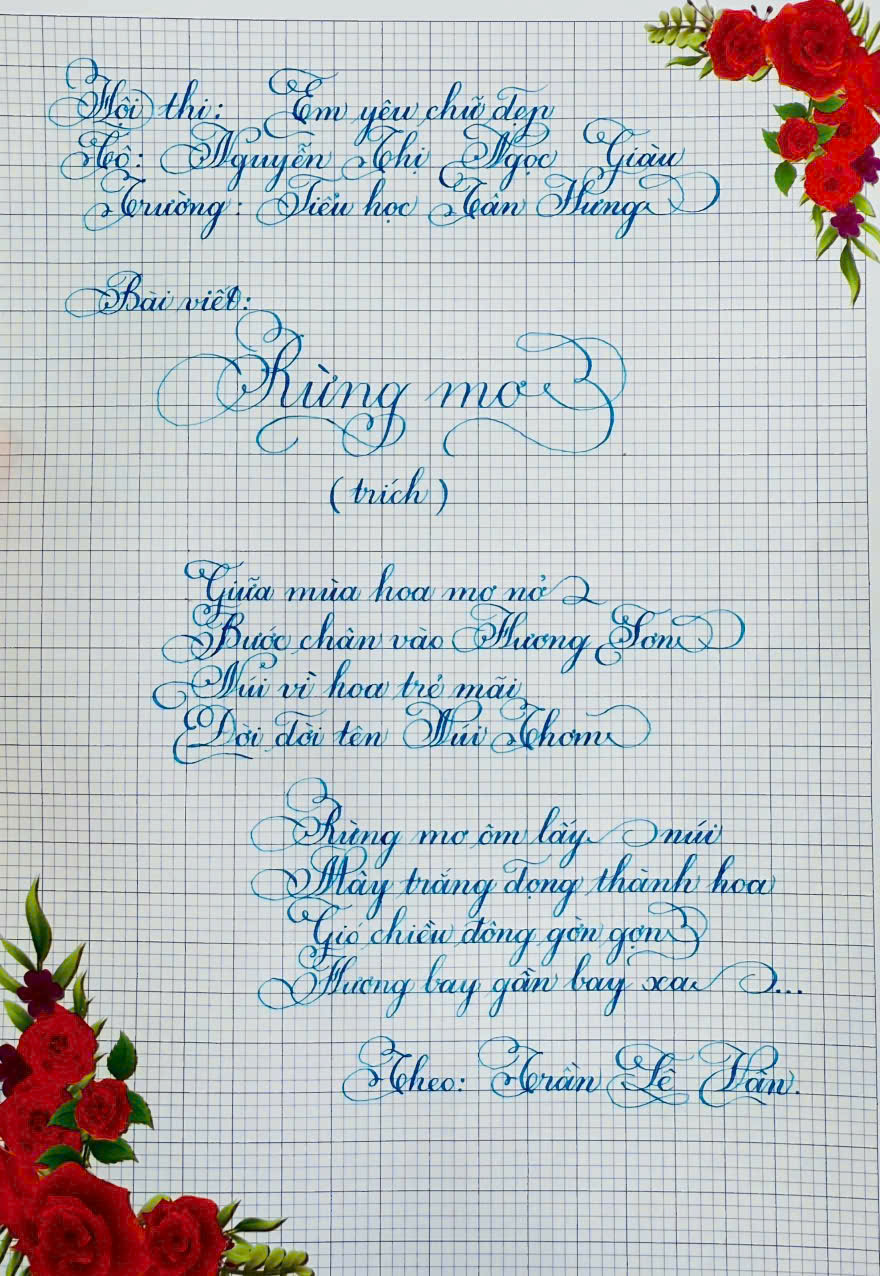 Hội thi: Em yêu chữ đẹp
Nguyễn Thị Ngọc Giàu
Trường: Tiểu học Tân Hưng
Bài viết:
Rừng mơ
(trích)
Giữa mùa hoa mơ nở
Bước chân vào Hương Sơn
Núi vì hoa trẻ mãi
Đời đời tên Núi Thơm
Rừng mơ ôm lấy núi
Mây trắng đọng thành hoa
Gió chiều đông gờn gợn
Hương bay gần bay xa ...
Theo: Trần Lê Văn.